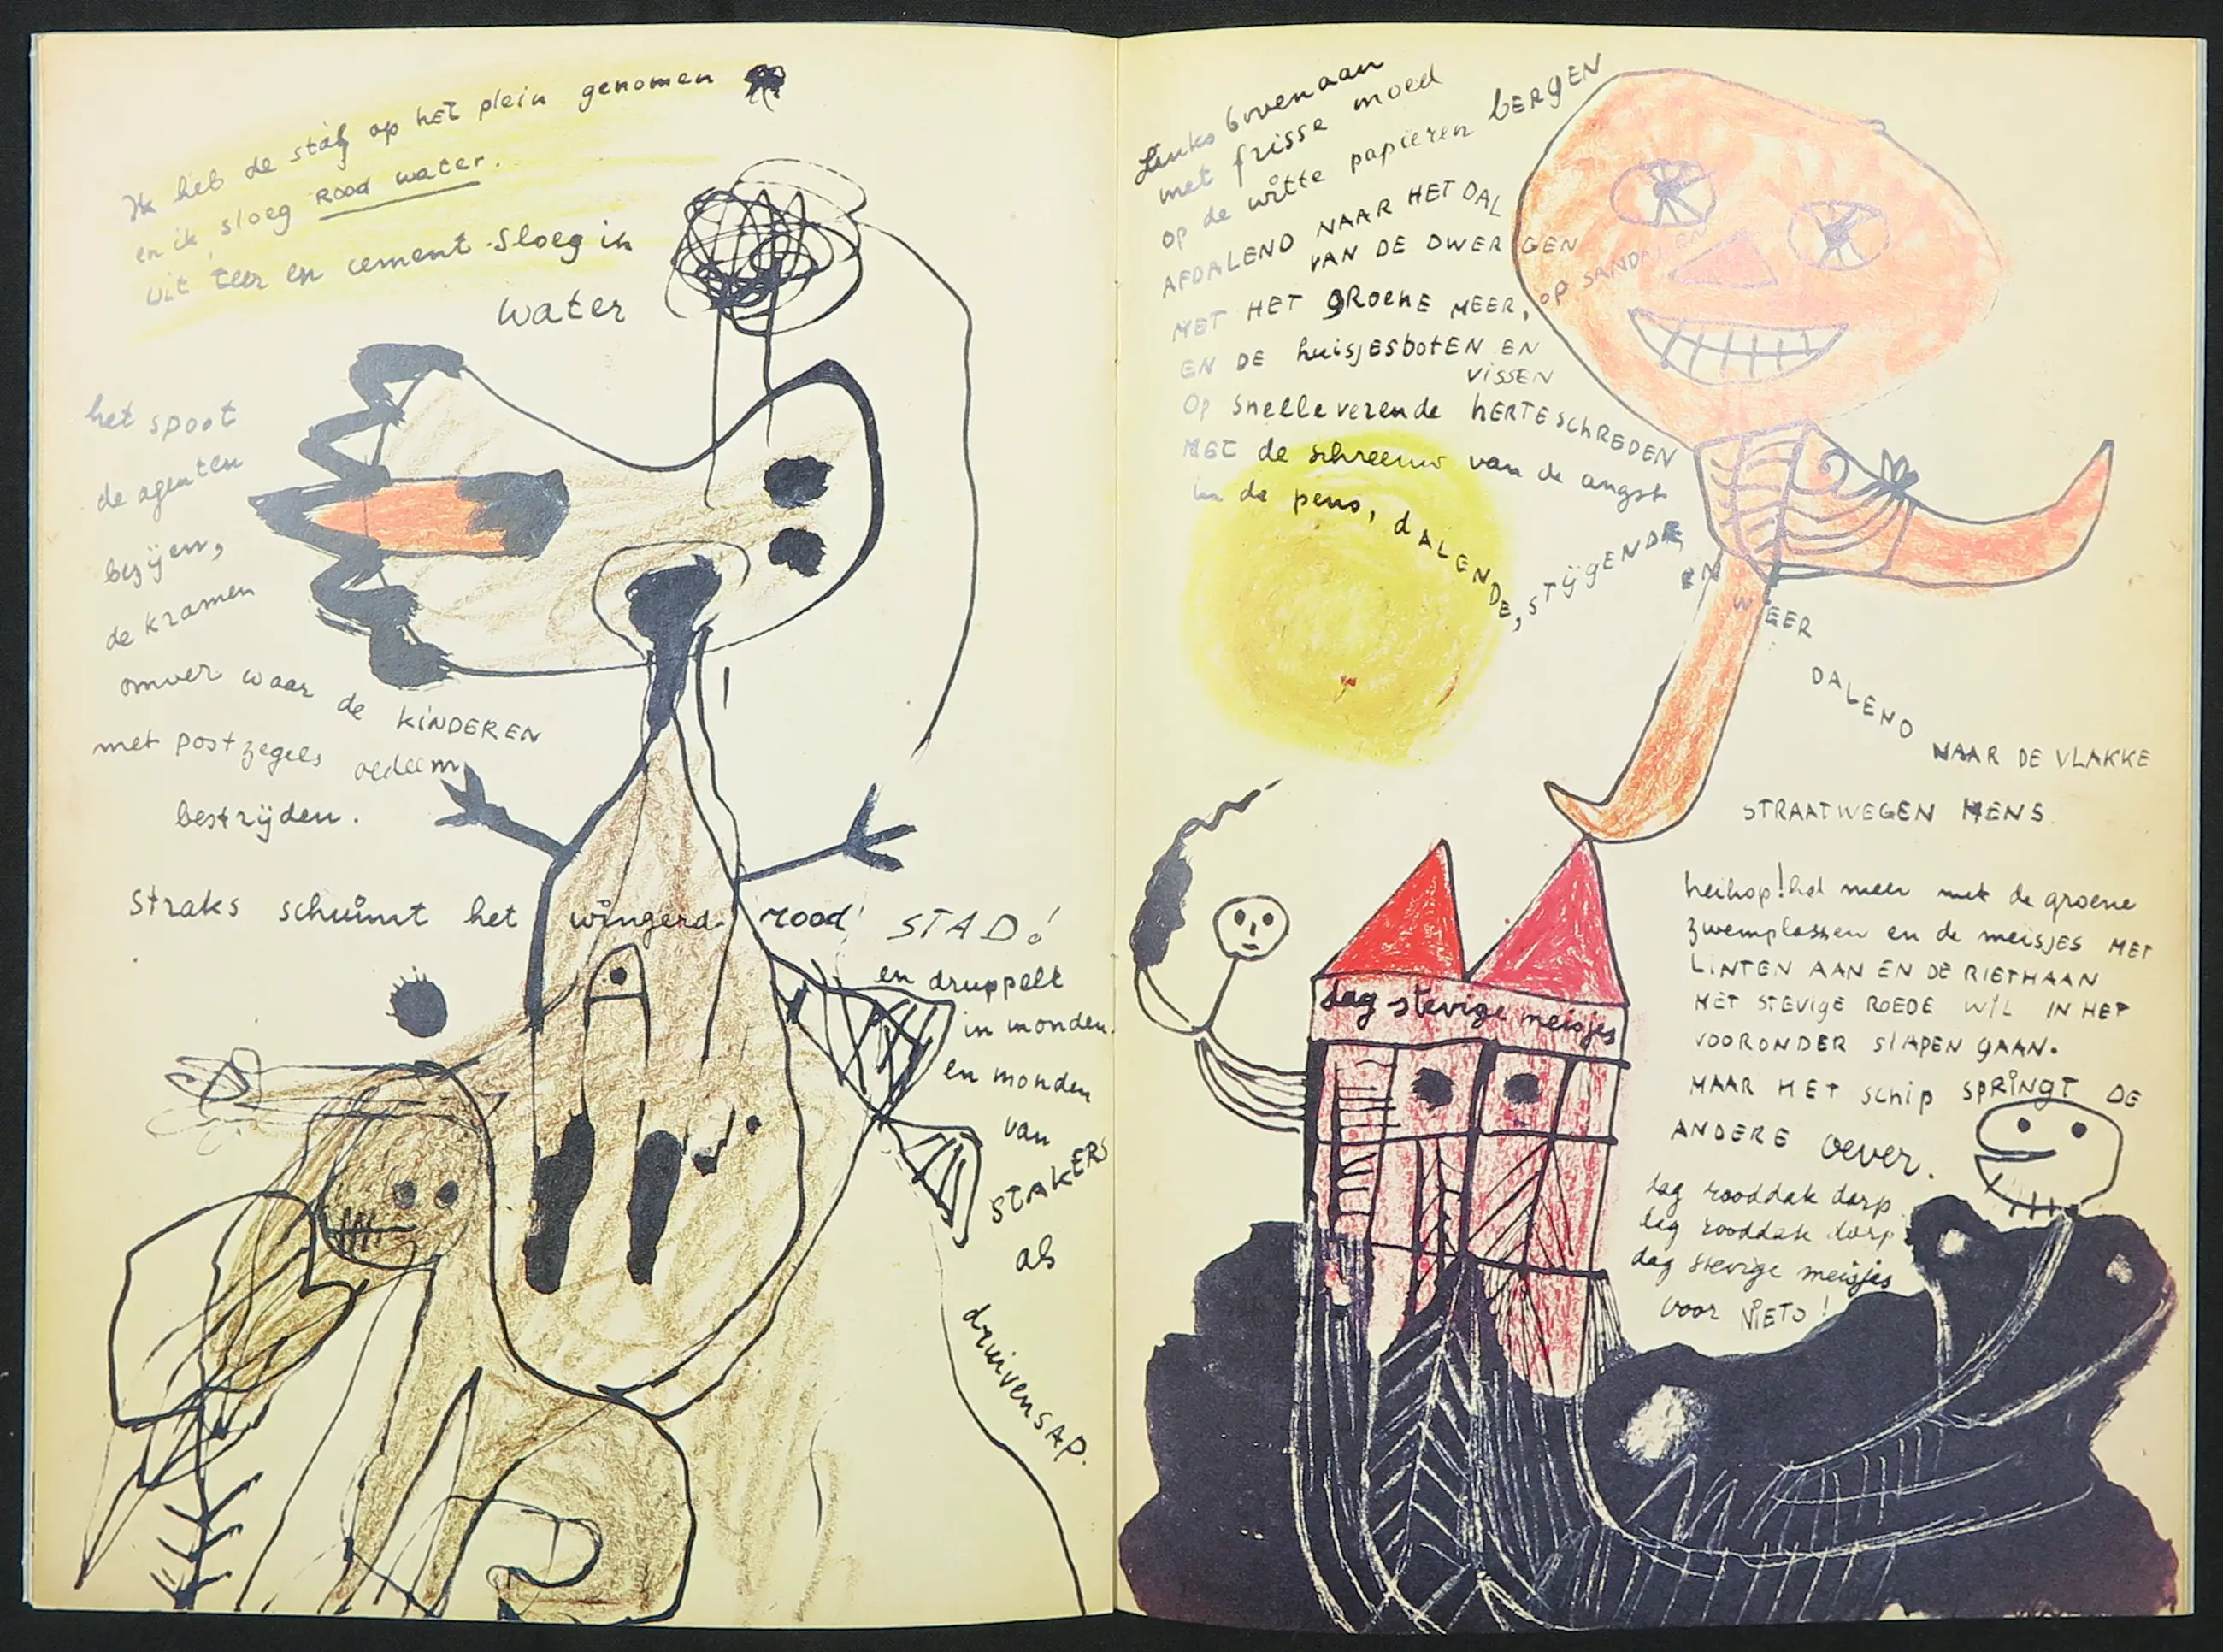 Ik heb de staf op het plein genomen
en ik sloeg ROOD water.
uit teer en cement sloeg ik
water
het spoot
de agenten
bezijen,
de kramen
omver waar de KINDEREN
met postzegels oedeem
bestrijden.
straks schuimt het wingerd rood STAD!
en druppelt
in monden
en monden
van
STAKERS
als
druivensap.
Links bovenaan
met frisse moed
op de witte papieren bERgEN
AFDALEND NAAR HET DAL
VAN DE DWERGEN
OP SANDALEN
MET HET gROENE MEER,
EN DE huisjesbotEN EN
VISSEN
Op snelle verende hERTESCHREDEN
MET de schreeuw van de angst
in de pens, dALENDE, STIJgENDE,
EN WEER
DALEND
NAAR DE VLAKKE
STRAATWEGEN MENS
heihop! het meer met de groene
zwemplassen en de meisjes MET
LINTEN AAN EN DE RIETHAAN
MET STEVIGE ROEDE WIL IN HET
VOORONDER SlAPEN gAAN.
MAAR HET schip SPRINGT DE
ANDERE oever.
dag rooddak dorp
dag rooddak dorp
dag stevige meisjes
voor NIETS!
dag stevige meisjes